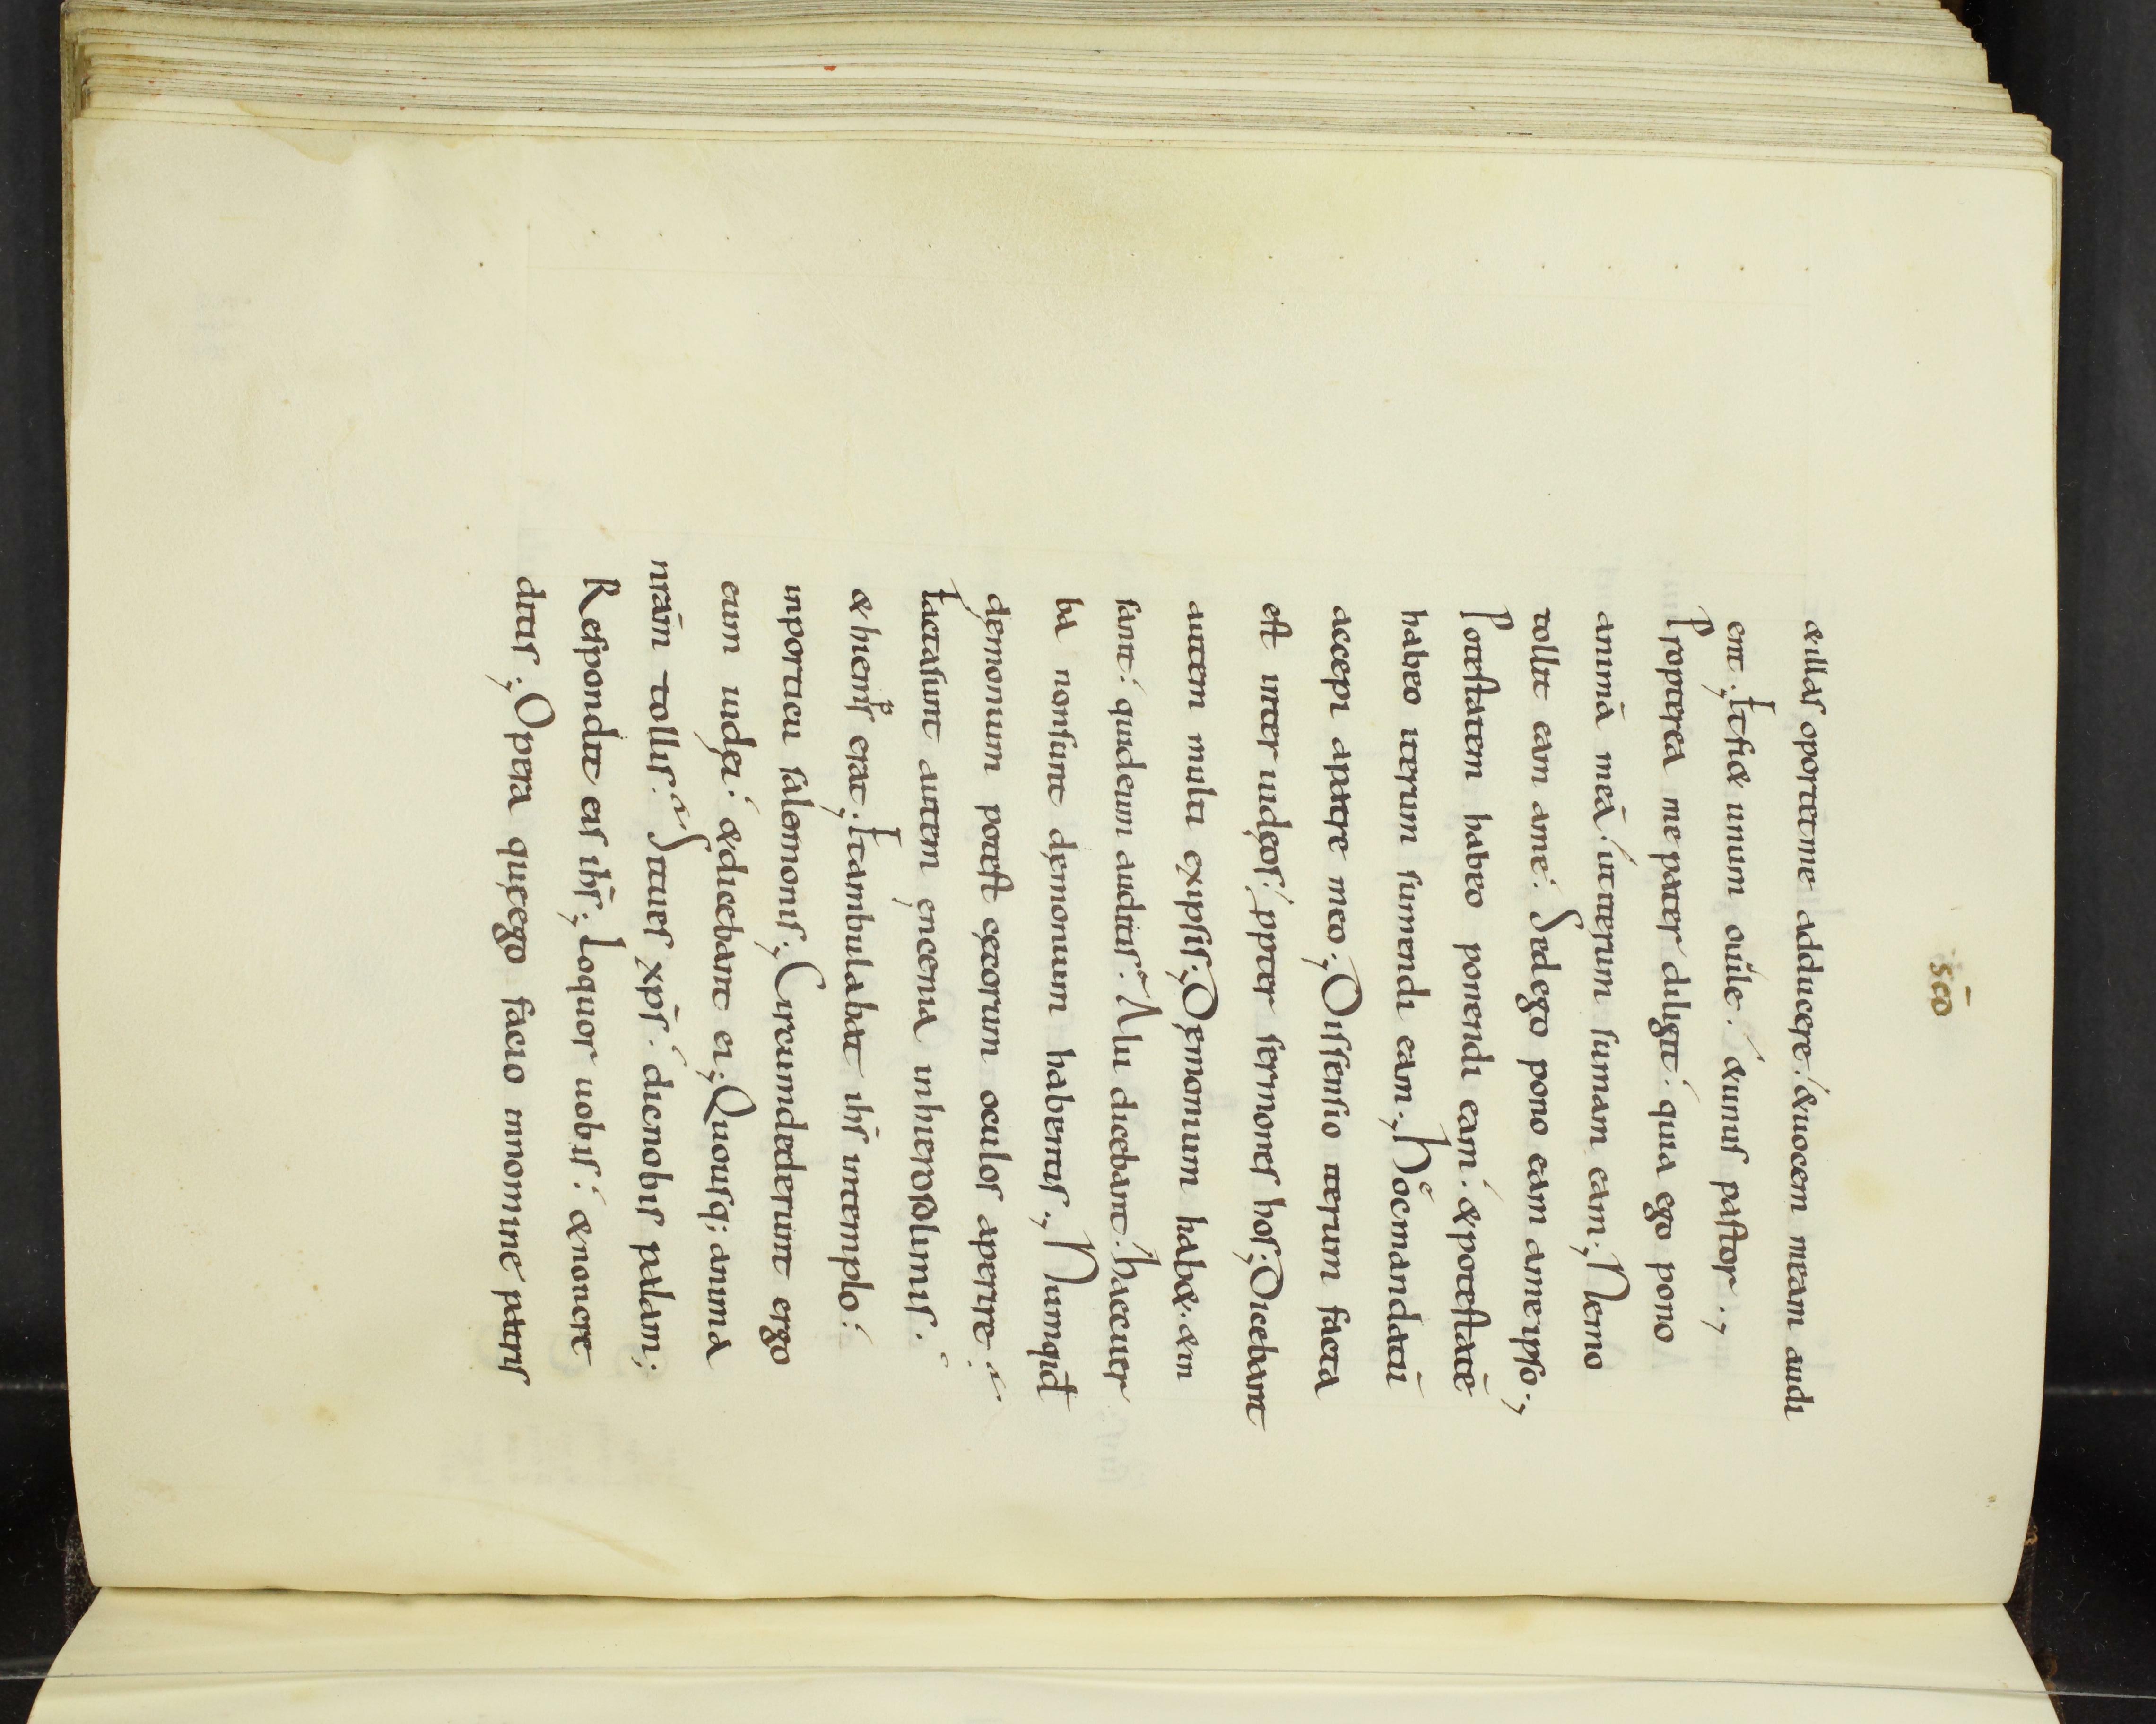 sc̄o
&illas oportet me adducere; & uocem meam audi
ent; Et fi& unum ouile; & unus pastor.,
Propterea me pater diligit; quia ego pono
animā meā; ut iterum sumam eam; Nemo
tollit eam a me; Sed ego pono eam a me ipso.,
Potestatem habeo ponendi eam; & potestatē
habeo iterum sumendi eam., Hoc mandatū
accepi a patre meo; Dissensio iterum facta
est inter iudęos; ppter sermones hos; Dicebant
autem multi ex ipsis; Dęmonium hab&; & in
sanit; quid eum auditis? Alii dicebant; haec uer
ba non sunt dęmonium habentis., Numquid
dęmonium potest cęcorum oculos aperire;
Facta sunt autem encenia in hierosolimis;
& hiemps erat; Et ambulabat ih̄s in templo;
in porticu salemonis; Circumdederunt ergo
eum iudęi; & dicebant ei; Quousq; anima
nr̄am tollis; Si tu es xp̄s; dic nobis palam;
Respondit eis ih̄s; Loquor uobis; & non cre
ditis; Opera quę ego facio in nomine patris